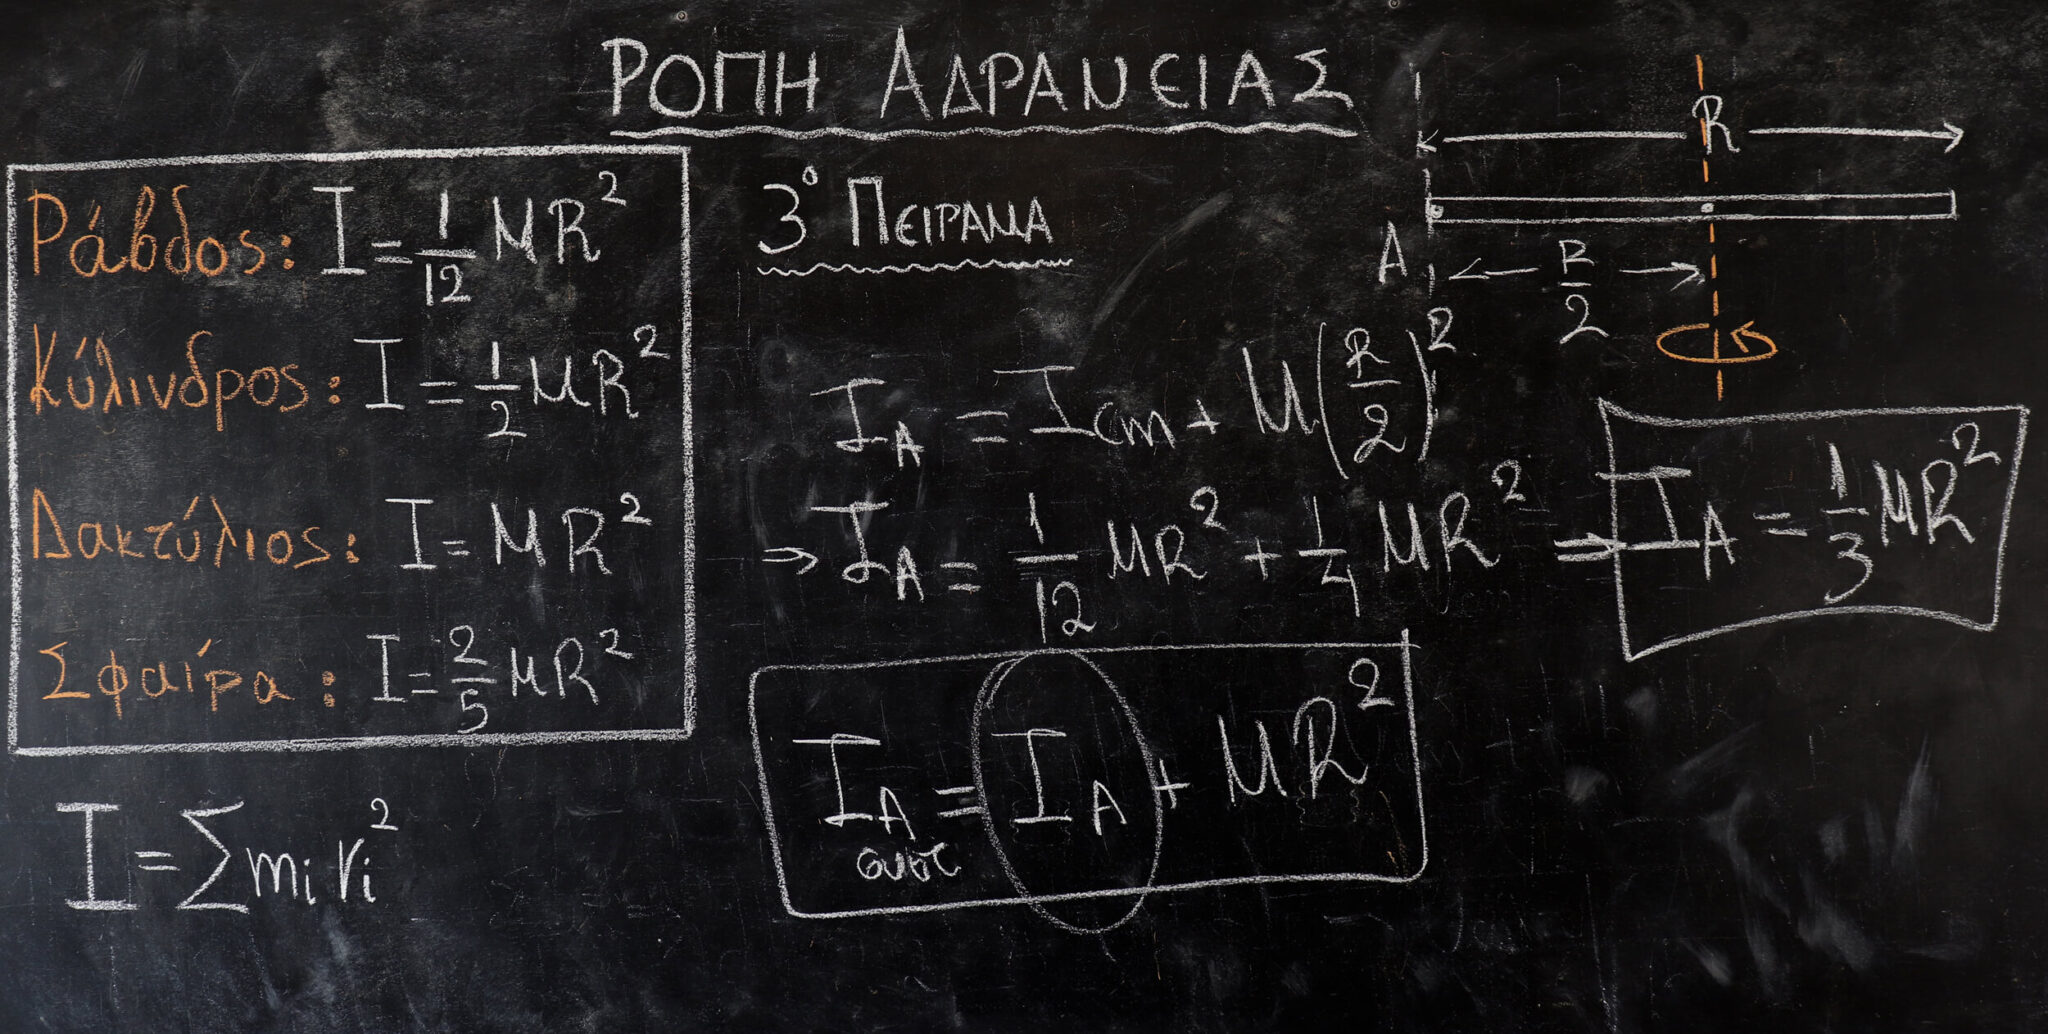 ΡΟΠΗ ΑΔΡΑΝΕΙΑΣ
Ράβδος: I = 1/12 MR²
Κύλινδρος: I = 1/2 MR²
Δακτύλιος: I = MR²
Σφαίρα: I = 2/5 MR²
I = Σ mᵢ rᵢ²
3° ΠΕΙΡΑΜΑ
R
A
R/2
I_A = I_cm + M(R/2)²
⇒ I_A = 1/12 MR² + 1/4 MR² ⇒ I_A = 1/3 MR²
I_A συστ = I_A + MR²